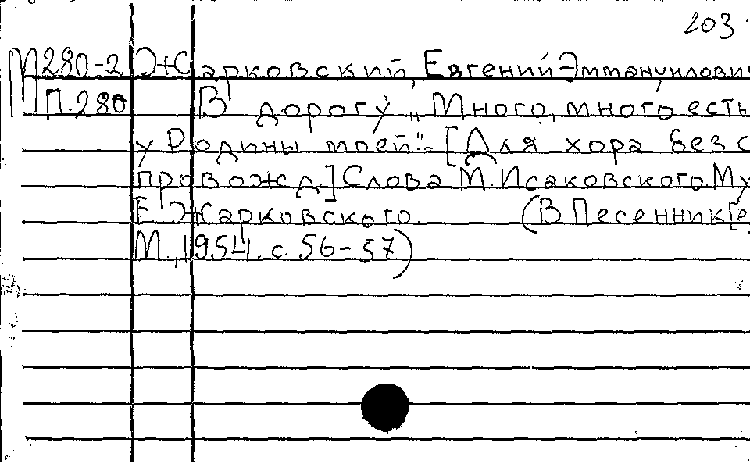 203
М280-2 Жарковский, Евгений Эммануилович
М П.280 В дорогу „Много, много есть
у Родины моей". [Для хора без с
провожд.] Слова М. Исаковского. Му
Е. Жарковского. (В Песенник[е]
М., 1954. с. 56-57)